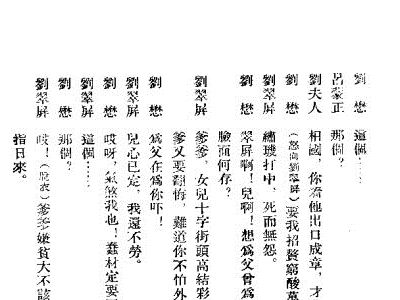 劉　懋　這個……
呂蒙正　那個？
劉夫人　相國，你看他出口成章，才
劉　懋　（怒向劉翠屏）要我招贅窮酸萬
劉翠屏　繡打中，死而無怨。
劉　懋　翠屏啊！兒啊！想爲父曾爲
臉面何存？
劉翠屏　爹爹，女兒十字街頭高結彩
爹又要翻悔，難道你不怕外
劉　懋　爲父在爲你吓！
劉翠屏　兒心已定，我還不勞。
劉　懋　哎呀，氣煞我也！蠢材定要
劉翠屏　這個……
劉　懋　那個？
劉翠屏　哎！（脫衣）爹爹嫌貧大不該
指日來。